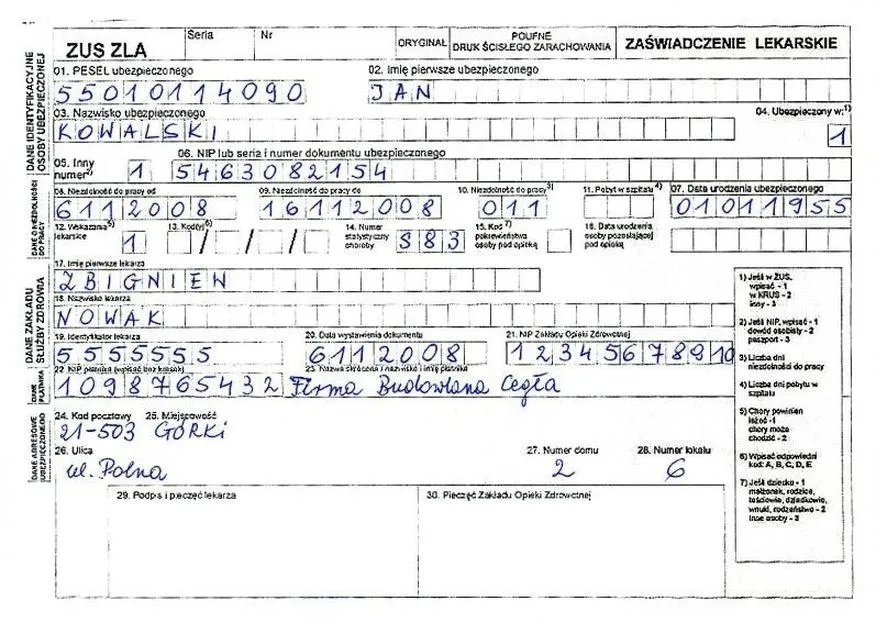 ZUS ZLA Seria Nr ORYGINAŁ POUFNE DRUK ŚCISŁEGO ZARACHOWANIA ZAŚWIADCZENIE LEKARSKIE
DANE IDENTYFIKACYJNE OSOBY UBEZPIECZONEJ
01. PESEL ubezpieczonego 02. Imię pierwsze ubezpieczonego
55010114090 JAN
03. Nazwisko ubezpieczonego 04. Ubezpieczony w:1)
KOWALSKI 1
05. Inny numer2) 1 06. NIP lub seria i numer dokumentu ubezpieczonego
5463082154
DANE O NIEZDOLNOŚCI DO PRACY
08. Niezdolność do pracy od 09. Niezdolność do pracy do 10. Niezdolność do pracy3) 11. Pobyt w szpitalu4) 07. Data urodzenia ubezpieczonego
6112008 16112008 011 01011955
12. Wskazania5) lekarskie 1 13. Kod(y)6) / / / 14. Numer statystyczny choroby S83 15. Kod7) pokrewieństwa osoby pod opieką 16. Data urodzenia osoby pozostającej pod opieką
DANE ZAKŁADU SŁUŻBY ZDROWIA
17. Imię pierwsze lekarza
ZBIGNIEW
18. Nazwisko lekarza
NOWAK
19. Identyfikator lekarza 20. Data wystawienia dokumentu 21. NIP Zakłady Opieki Zdrowotnej
5555555 6112008 12345678910
DANE PŁATNIKA
22. NIP płatnika (wpisać bez kresek) 23. Nazwa skrócona / nazwisko i imię płatnika
1098765432 Firma Budowlana Cegła
DANE ADRESOWE UBEZPIECZONEGO
24. Kod pocztowy 25. Miejscowość
21-503 GÓRKI
26. Ulica 27. Numer domu 28. Numer lokalu
ul. Polna 2 6
29. Podpis i pieczęć lekarza 30. Pieczęć Zakładu Opieki Zdrowotnej
1) Jeśli w ZUS,
wpisać - 1
w KRUS - 2
inny - 3
2) Jeśli NIP, wpisać - 1
dowód osobisty - 2
paszport - 3
3) Liczba dni
niezdolności do pracy
4) Liczba dni pobytu w
szpitalu
5) Chory powinien
leżeć - 1
chory może
chodzić - 2
6) Wpisać odpowiedni
kod: A, B, C, D, E
7) Jeśli dziecko - 1
małżonek, rodzice,
teściowie, dziadkowie,
wnuki, rodzeństwo - 2
Inne osoby - 3